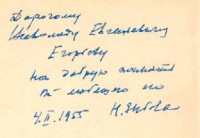 Дорогому
Всеволоду Евгеньевичу
Егорову
на добрую память
от
4.II.1955